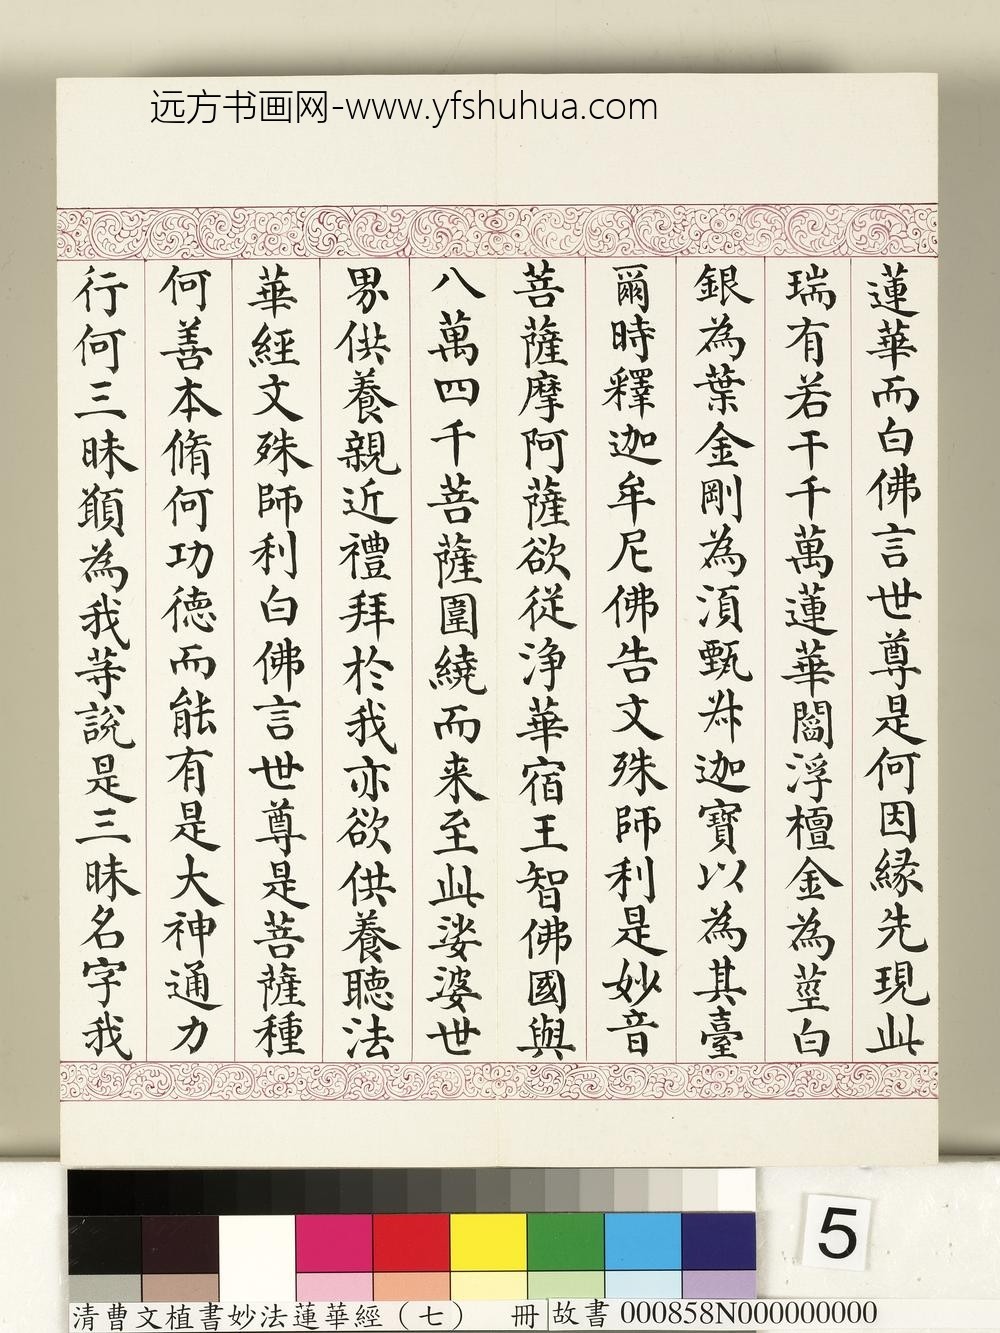 远方书画网-www.yfshuhua.com
蓮華而白佛言世尊是何因緣先現此
瑞有若干千萬蓮華閻浮檀金為莖白
銀為葉金剛為湏甄叔迦寶以為其臺
爾時釋迦牟尼佛告文殊師利是妙音
菩薩摩阿薩欲從淨華宿王智佛國與
八萬四千菩薩圍繞而来至此娑婆世
界供養親近禮拜於我亦欲供養聽法
華經文殊師利白佛言世尊是菩薩種
何善本脩何功德而能有是大神通力
行何三昧願為我等說是三昧名字我
5
清曹文植書妙法蓮華經（七） 冊 故書 000858N000000000